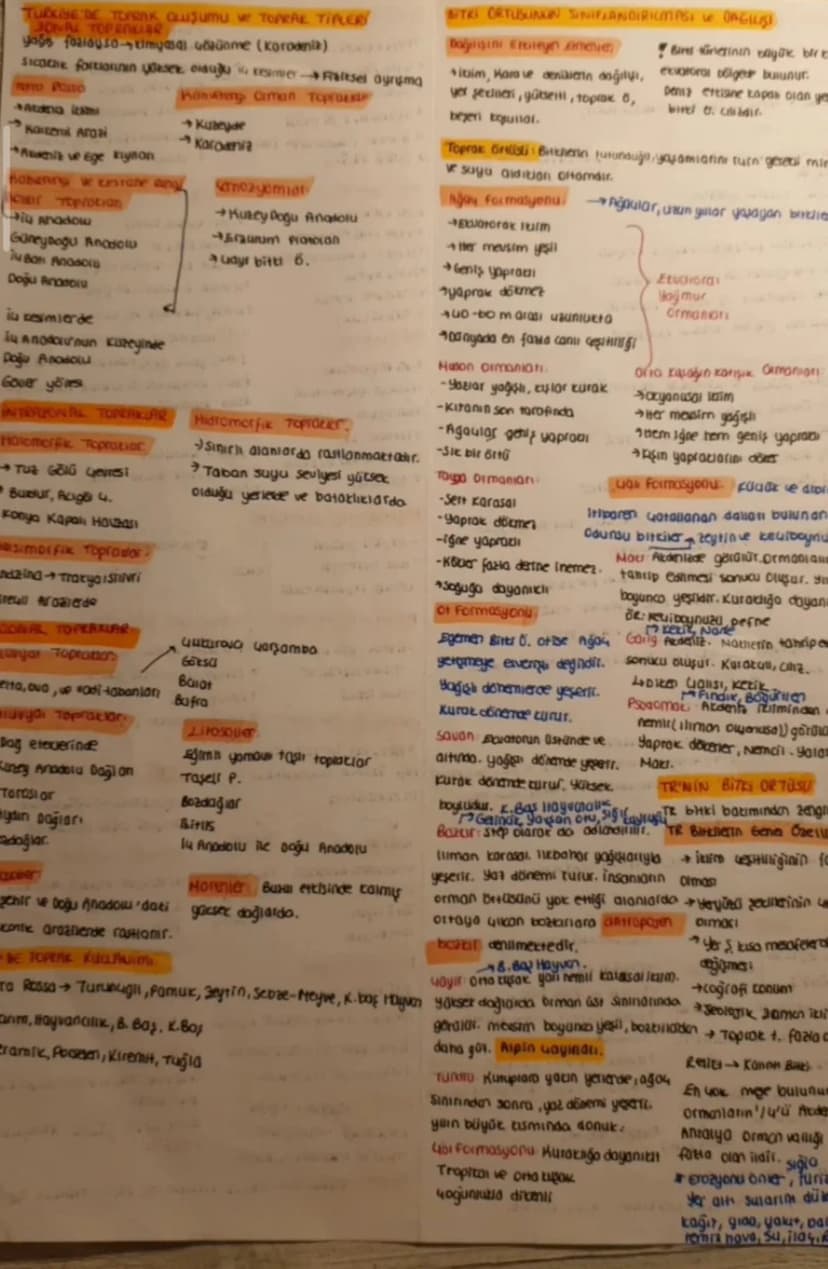 TÜRKİYE'DE TOPRAK OLUŞUMU VE TOPRAK TİPLERİ
ZONAL TOPRAKLAR
yağış fazlaysa → kimyasal çözünme (Karadeniz)
sıcaklık farklarının yüksek olduğu iç kesimler → Fiziksel ayrışma
Terra Rossa
→ Akdeniz iklimi
→ Kalkerli Arazi
→ Akdeniz ve Ege kıyıları
Kahverengi Orman Toprakları
→ Kuzeyde
→ Karadeniz
Kahverengi ve kestane rengi
Bozkır Toprakları
→ İç Anadolu
Güneydoğu Anadolu
İç Batı Anadolu
Doğu Anadolu
İç kesimlerde
İç Anadolu'nun Kuzeyinde
Doğu Anadolu
Göller yöresi
Çernozyomlar
→ Kuzey Doğu Anadolu
→ Erzurum Platoları
→ Çayır bitki Ö.
İNTRAZONAL TOPRAKLAR
Halomorfik Topraklar
→ Tuz Gölü Çevresi
Burdur, Acıgöl ç.
Konya Kapalı Havzası
Hidromorfik Topraklar.
→ Sınırlı alanlarda rastlanmaktadır.
→ Taban suyu seviyesi yüksek
olduğu yerlerde ve bataklıklarda
→ Trakya, Silivri
TOPRAKLAR
Topraklar
delta, ova, ve vadi tabanları
Çukurova Çarşamba
Göksu
Balat
Bafra
Topraklar.
Dağ eteklerinde
Güney Anadolu Dağları
Toroslar
Aydın Dağları
Bozdağlar.
Litosoller
Eğimli yamaç taşlı topraklar
Taşeli P.
Bozdağlar
Bitlis
İç Anadolu ile Doğu Anadolu
ve Doğu Anadolu'daki
arazilerde rastlanır.
Morenler: Buzul etkisinde kalmış
yüksek dağlarda.
DE TOPRAK KULLANIMI
Rossa → Turunçgil, Pamuk, Zeytin, Sebze-Meyve, K.baş Hayvan
Tarım, Hayvancılık, B. Baş, K. Baş
Seramik, Porselen, Kiremit, Tuğla
BİTKİ ÖRTÜSÜNÜN SINIFLANDIRILMASI ve DAĞILIŞI
Dağılışını Etkileyen Etmenler
→ İklim, Kara ve denizlerin dağılışı,
yer şekilleri, yükselti, toprak ö,
beşeri koşullar.
! Bitki türlerinin büyük bir k
ekvatoral bölgede bulunur.
Deniz etkisine kapalı olan ye
bitki ö. cılızdır.
Toprak Örtüsü: Bitkilerin tutunduğu, yaşamlarını için gerekli min
ve suyu aldıkları ortamdır.
Ağaç Formasyonu: → Ağaçlar, uzun yıllar yaşayan bitkile
→ Ekvatoral iklim
→ Her mevsim yeşil
→ Geniş yapraklı
→ yaprak dökmez
→ 40-60 m arası uzunlukta
→ Dünyada en fazla canlı çeşitliliği
Ekvatoral
Yağmur
Ormanları
Muson Ormanları:
- Yazlar yağışlı, kışlar kurak
- Kıtanın son tarafında
- Ağaçlar geniş yapraklı
- Sık bir örtü
Orta Kuşağın Karışık Ormanları:
→ Okyanusal iklim
→ Her mevsim yağışlı
→ Hem iğne hem geniş yapraklı
→ Kışın yapraklarını döker
Tayga Ormanları:
- Sert Karasal
- Yaprak dökmez
- İğne yapraklı
- Kökler fazla derine inemez.
→ Soğuğa dayanıklı
Çalı Formasyonu:
itibaren çatallanan dalları bulunan
Odunsu bitkiler → zeytin ve keçiboynu
Maki: Akdenizde görülür. Ormanların
tahrip edilmesi sonucu oluşur. yıl
boyunca yeşildir. Kuraklığa dayanı
ÖR: Keçiboynuzu, Defne
Garig: Akdeniz. Makilerin tahrip e
sonucu oluşur. Kurakçıl, cılız.
→ Diken Çalısı, Kekik
→ Fındık, Böğürtlen
Psödomaki: Akdeniz ikliminden
nemli (ılıman Okyanusal) görülü
Yaprak dökenler, Nemcil - Yalan
Maki.
Ot Formasyonu
Egemen Bitki Ö. otlar. Ağaç
yetişmeye elverişli değildir.
Yağışlı dönemlerde yeşerir.
Kurak dönemde kurur.
Savan: Ekvatorun üstünde ve
altında. yağışlı dönemde yeşerir.
Kurak dönemde kurur. Yüksek
boyludur. K. Baş Hayvancılık
→ Gelincik, Yavşan otu, Sığır kuyruğu
Bozkır: Step olarak da adlandırılır.
Iliman karasal. İlkbahar yağışlarıyla
yeşerir. Yaz dönemi kurur. İnsanların
orman örtüsünü yok ettiği alanlarda
ortaya çıkan bozkırlara antropojen
bozkır denilmektedir.
→ B. Baş Hayvan.
Çayır: Orta kuşak yarı nemli karasal iklim.
Yüksek dağlarda Orman üst sınırlarında
görülür. mevsim boyunca yeşil, bozkırlardan
daha gür. Alpin Çayırları.
Tundra: Kutuplara yakın yerlerde, ağaç
sınırından sonra, yaz dönemi yeşerir.
yılın büyük kısmında donuk.
Çöl Formasyonu: Kuraklığa dayanıklı
Tropikal ve orta kuşak
çoğunlukla dikenli
TR'NİN BİTKİ ÖRTÜSÜ
TR bitki bakımından zengi
TR Bitkilerin Genel Özell
→ İklim çeşitliliğinin fa
olması
→ Yeryüzü şekillerinin çe
olması
→ Yer Ş. kısa mesafelerde
değişmesi
→ Coğrafi konum
→ Jeolojik zaman ikli
→ Toprak t. fazla o
Relikt → Kalıntı Bitki
En çok meşe bulunur
ormanların 1/4'ü Akde
Antalya orman varlığı
fazla olan ildir. sığla
* erozyonu önler, turiz
Yer altı sularını
kağıt, gıda, yakıt,
temiz hava, su, ilaç,